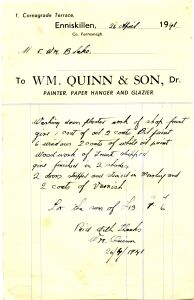 1, Cornagrade Terrace,
Enniskillen, 26 April 1941
Co. Fermanagh.
M
To WM. QUINN & SON, Dr.
PAINTER, PAPER HANGER AND GLAZIER
Washing down plaster work of shop front
give 1 coat of oil 2 coats oil paint
6 windows 2 coats of white oil paint
Wood work of front stripped
give finished in 2 shades
2 doors stripped and stained in and
2 coats of Varnish
For the sum of £13
Paid with thanks
Wm. Quinn
26/4/1941